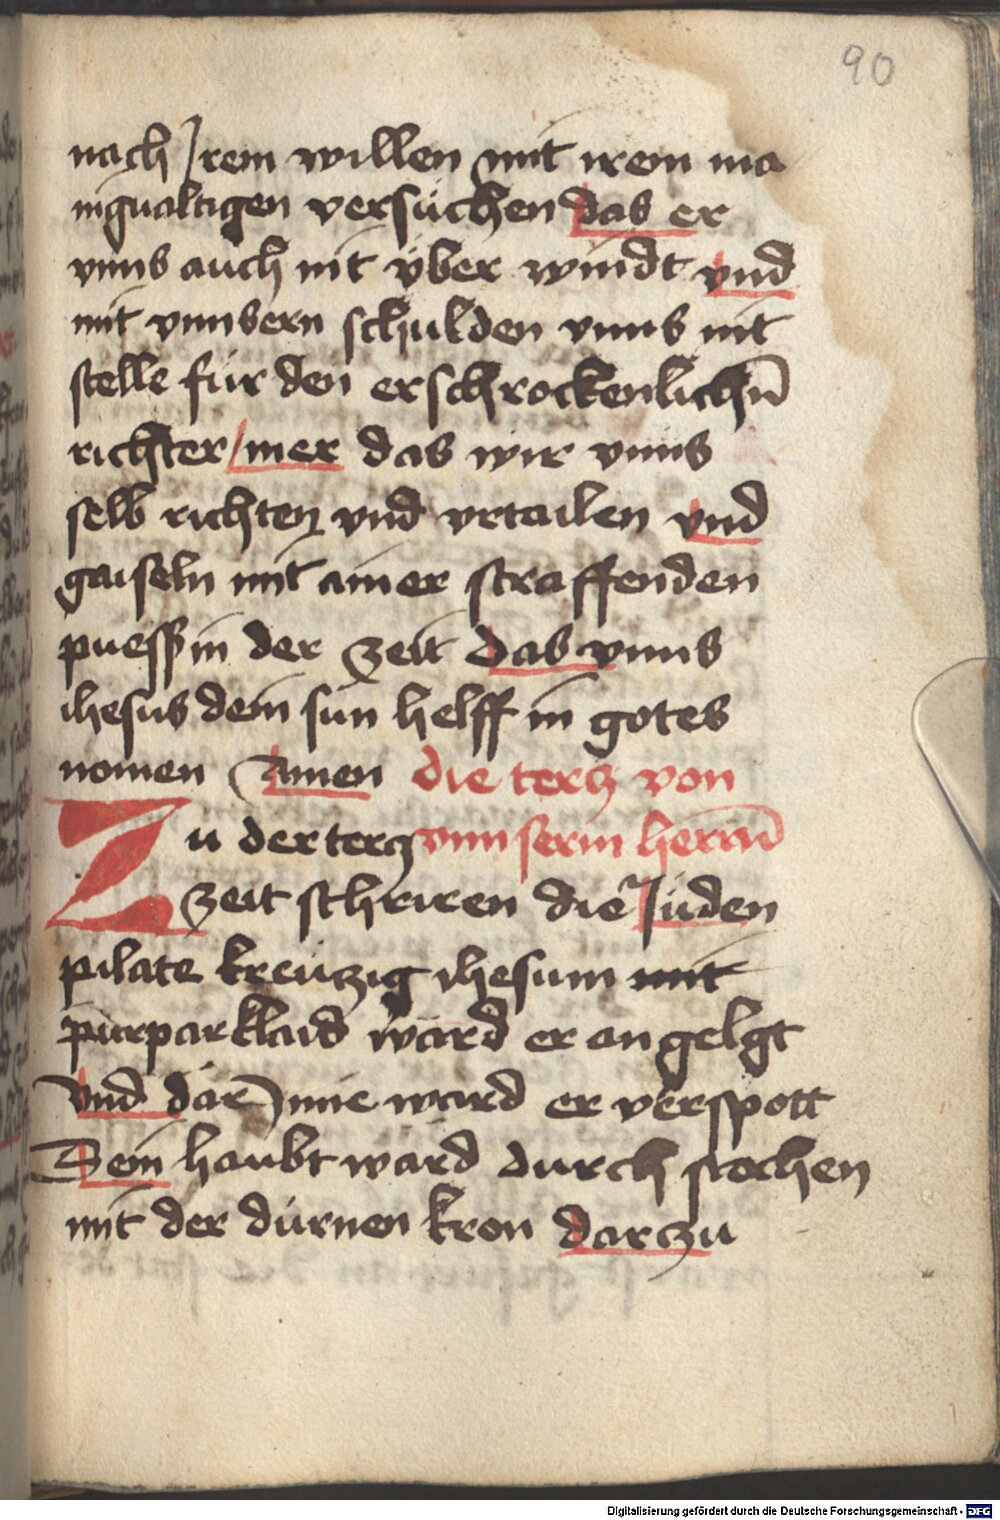 90
nach Jrem willen mit irem ma
nigualtigen versüchen das er
vnns auch nit über windt vnd
mit vnnsern schulden vnns nit
stelle für den erschrockenlichn̄
richter / mer das wir vnns
selb richten vnd vrtailen vnd
gaiseln mit ainer straffenden
puess in der zeit das vnns
ihesus dein sun helff in gotes
nomen Amen die tercz von
Zu der tercz vnnserm herrn̄
zeit schriren die Jüden
pilate kreützig ihesum mit
purpar klaid ward er an gelgt
vnd dar Jnne ward er verspott
Sein haubt ward durch stochen
mit der dürnen kron darzu
Digitalisierung gefördert durch die Deutsche Forschungsgemeinschaft - DFG